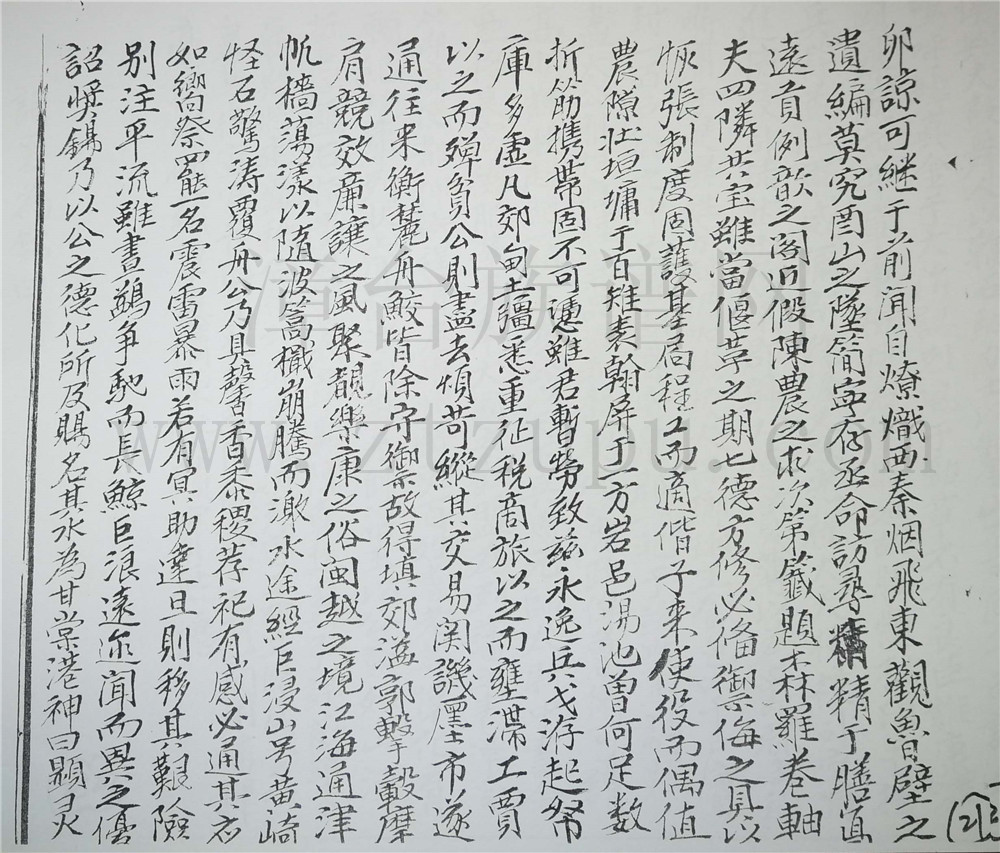 卯諒可継于前聞自燎熾西秦烟飛東觀魯壁之
遺編莫究酉山之墜简寧存丞命訪尋精丁膳寫
遠貢例歆之阁近假陳農之求次第籖題森羅卷軸
夫四隣共宝雖當偃草之期七德方修必俻禦侮之具以
恢張制度固護基局程工而適偕子来使役而偶值
農隙壮垣墉于百雉表翰屏于一方岩邑湯池曽何足数
折筋携帶固不可憑雖君暫勞致兹永逸兵戈荐起帑
庫多虚凡郊甸土疆悉重征税商旅以之而壅滯工賈
以之而殫貧公則盡去煩苛縱其交易関譏廛市遂
通往来衡麓舟鮫皆除守禦故得填郊溢郭擊轂摩
肩競效廉讓之風聚觀樂康之俗闽越之境江海通津
帆檣荡漾以隨波篙檝崩騰而激水途經巨浸山号黄崎
怪石驚涛覆舟公乃具馨香黍稷荐祀有感必通其应
如嚮祭罷一名震雷暴雨若有冥助達旦則移其艱險
别注平流雖書鷁争馳而長鯨巨浪遠迩闻而異之優
詔奬錫乃以公之德化所及賜名其水為甘棠港神曰顯灵
漳台族譜网
www.ztzupu.com